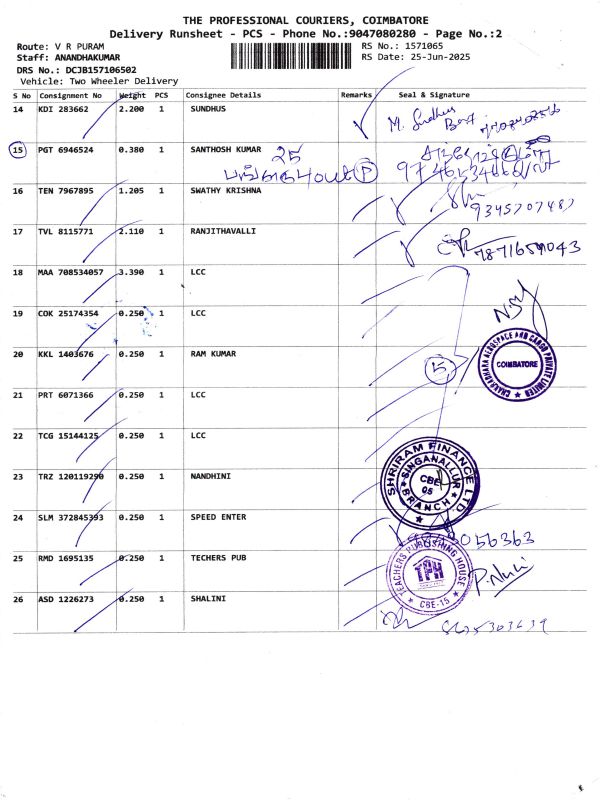 THE PROFESSIONAL COURIERS, COIMBATORE
Delivery Runsheet - PCS - Phone No.:9047080280 - Page No.:2
Route: V R PURAM
RS No.: 1571065
Staff: ANANDHAKUMAR
RS Date: 25-Jun-2025
DRS No.: DCJB157106502
Vehicle: Two Wheeler Delivery
S No Consignment No Weight PCS Consignee Details Remarks Seal & Signature
14 KDI 283662 2.200 1 SUNDHUS
M. Sundhus
15 PGT 6946524 0.380 1 SANTHOSH KUMAR 25
16 TEN 7967895 1.205 1 SWATHY KRISHNA
9345707487
17 TVL 8115771 2.110 1 RANJITHAVALLI
7871659043
18 MAA 708534057 3.390 1 LCC
19 COK 25174354 0.250 1 LCC
20 KKL 1403676 0.250 1 RAM KUMAR
5
CHAKRADHARA AEROSPACE AND CARGO PRIVATE LIMITED
COIMBATORE
21 PRT 6071366 0.250 1 LCC
22 TCG 15144125 0.250 1 LCC
23 TRZ 120119290 0.250 1 NANDHINI
SHRIRAM FINANCE LTD
SINGANALLUR
CBE
05
BRANCH
24 SLM 372845393 0.250 1 SPEED ENTER
056363
25 RMD 1695135 0.250 1 TECHERS PUB
TEACHERS PUBLISHING HOUSE
TPH
CBE-15
26 ASD 1226273 0.250 1 SHALINI